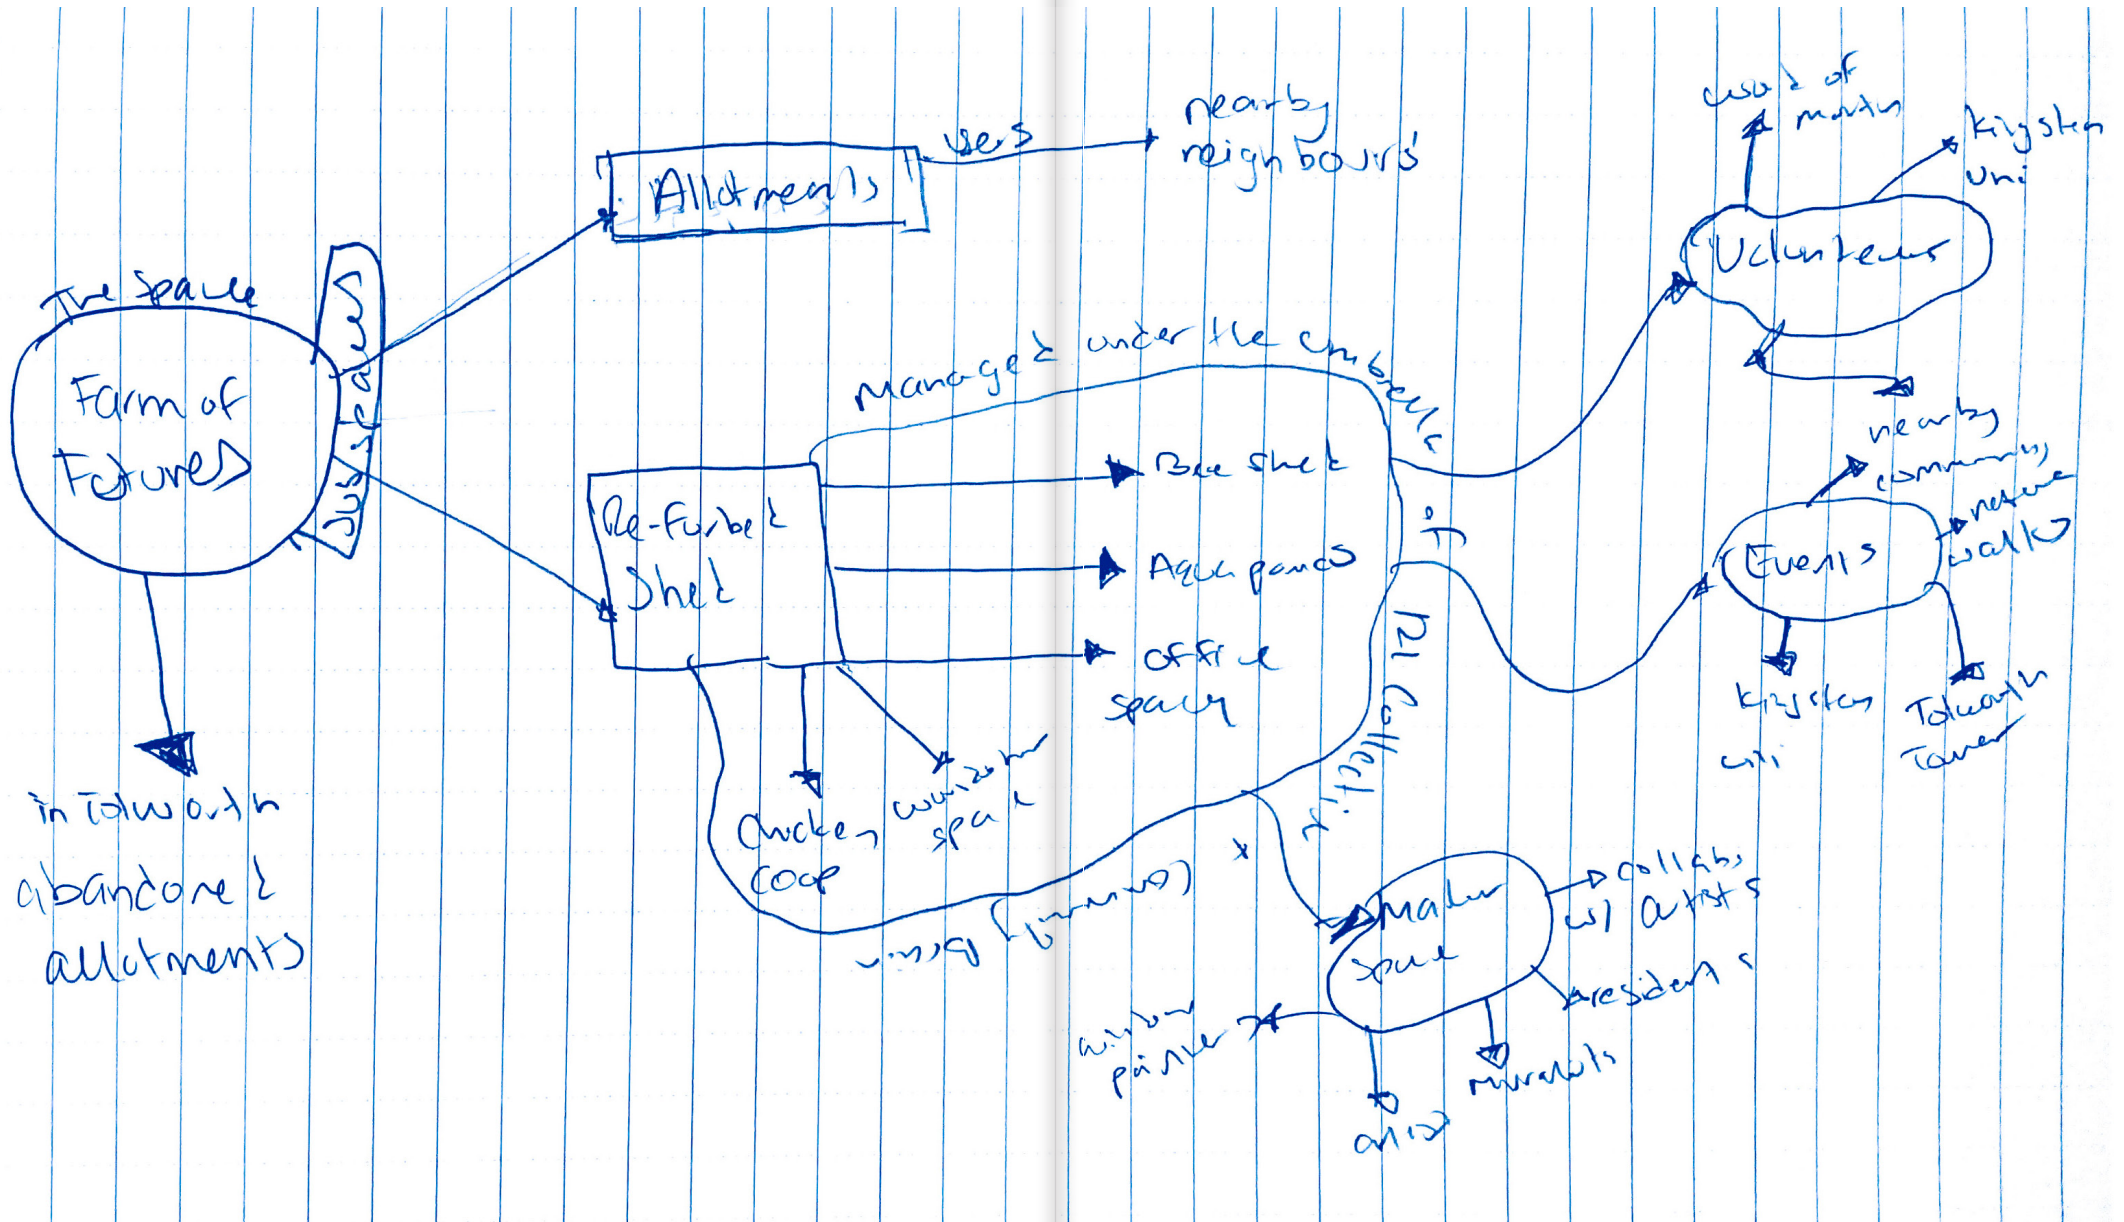 The Space
Farm of
Futures
in Tolworth
abandoned
allotments
Allotments
users
nearby
neighbours
Re-Furbed
Shed
Managed under the umbrella
of
121 Collective
Bee Shed
Aquaponics
office
space
Chicken
coop
space
Volunteers
Kingston
uni
nearby
community
Events
nature
walks
Kingston
uni
Tolworth
Tower
Maker
space
collabs
w/ artists
residents
muralists
artist
window
painter